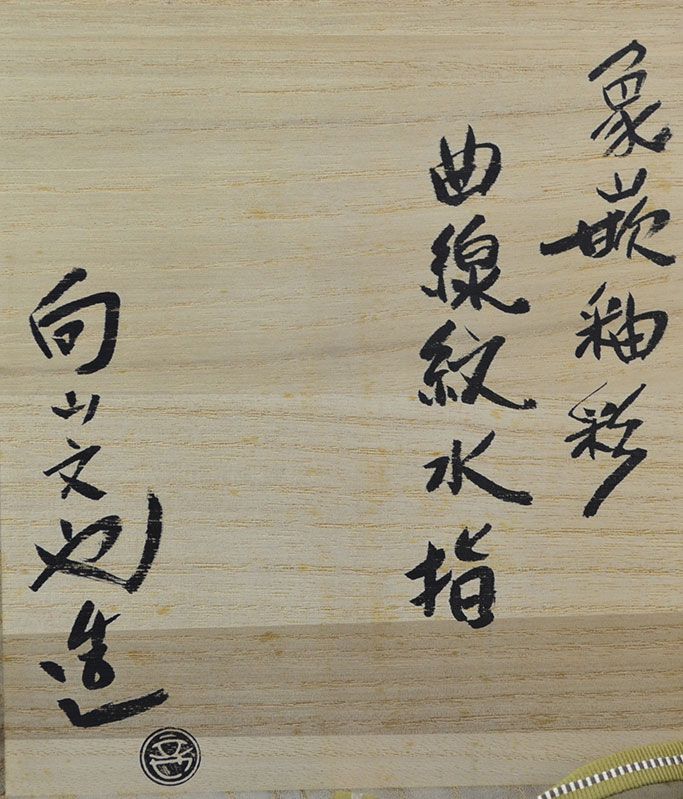 象嵌釉彩
曲線紋水指
向山文也造